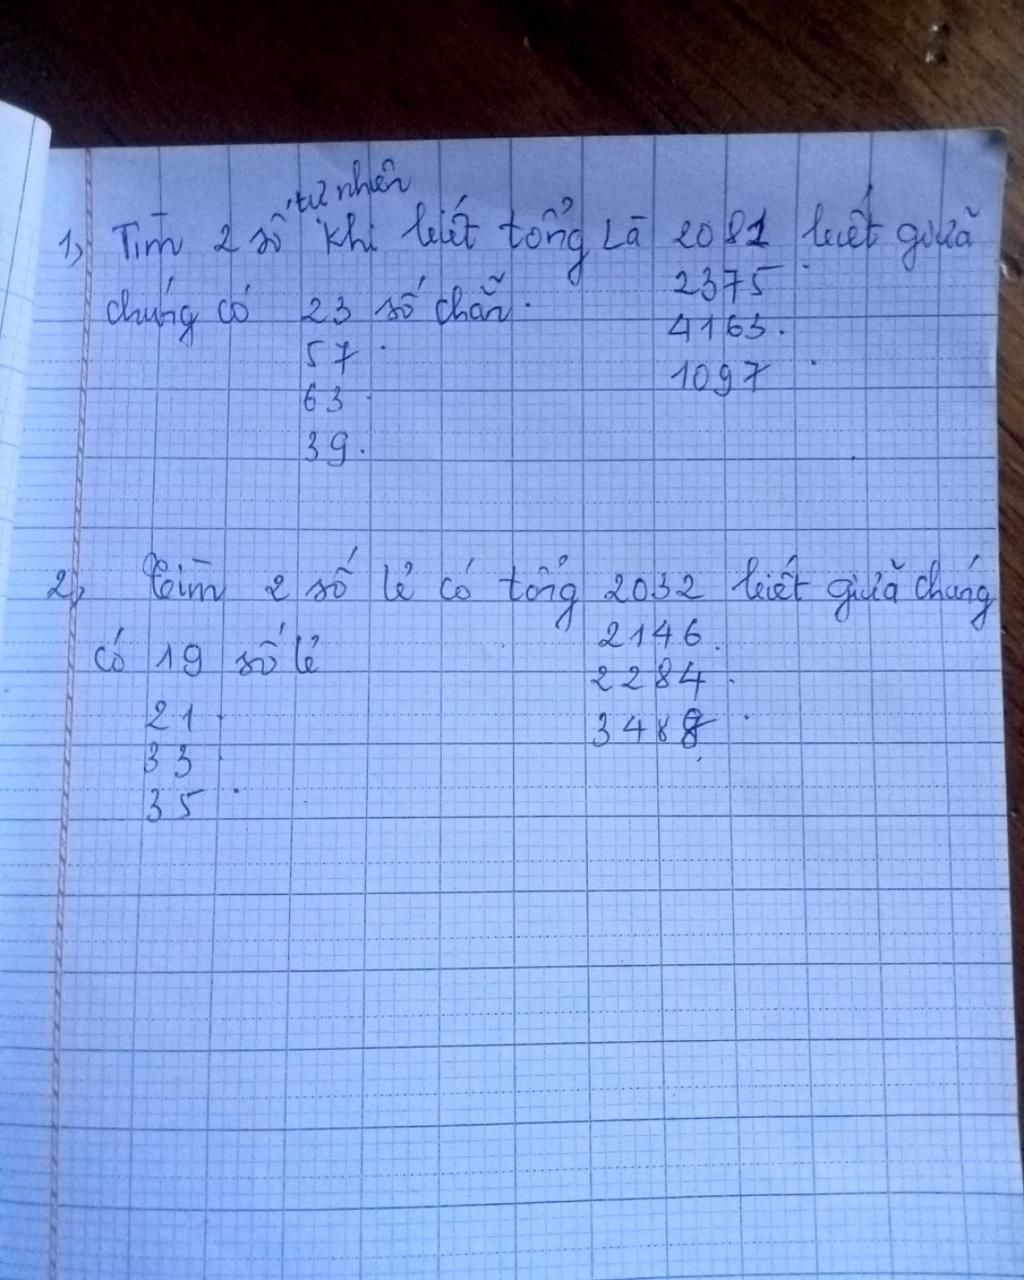 tự nhiên
1, Tìm 2 số khi biết tổng là 2081 biết giữa
2375
chúng có 23 số chẵn.
4163.
57
1097
63
39.
2, tìm 2 số lẻ có tổng 2032 biết giữa chúng
2146
có 19 số lẻ
2284
21
3488
33
35